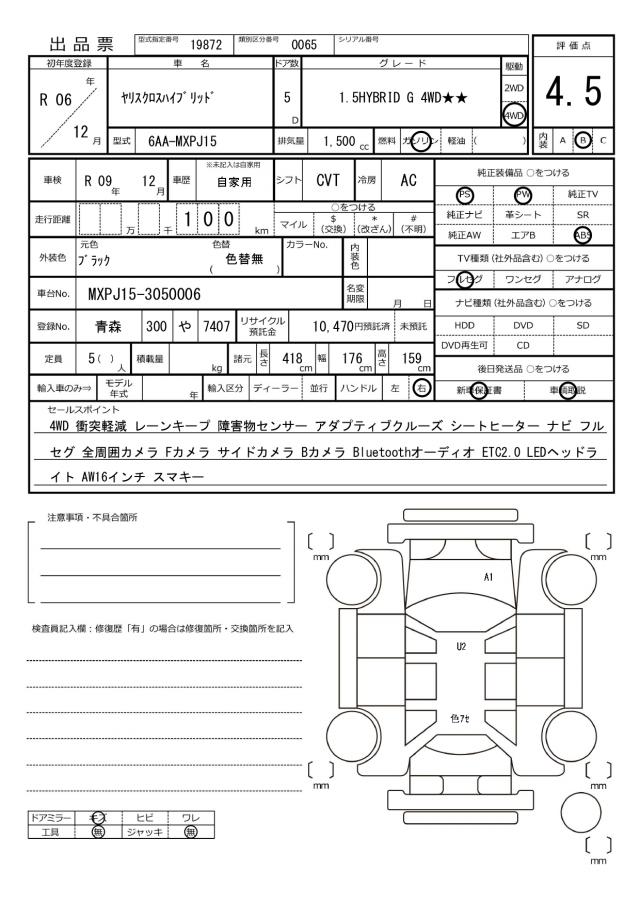 出品票 型式指定番号 19872 類別区分番号 0065 シリアル番号
評価点
4.5
内装 A B C
初年度登録 車名 ドア数 グレード 駆動
R 06 年 12 月
ﾔﾘｽｸﾛｽﾊｲﾌﾞﾘｯﾄﾞ 5 D 1.5HYBRID G 4WD★★ 2WD 4WD
型式 6AA-MXPJ15 排気量 1,500 cc 燃料 ガソリン 軽油 ( )
車検 R 09 年 12 月 車歴 ※未記入は自家用 自家用 シフト CVT 冷房 AC
走行距離 万 千 1 0 0 km ○をつける
マイル $(交換) *(改ざん) #(不明)
外装色 元色 ﾌﾞﾗｯｸ 色替 ( 色替無 ) カラーNo. 内装色
車台No. MXPJ15-3050006 名変期限 月 日
登録No. 青森 300 や 7407 リサイクル預託金 10,470円預託済 未預託
定員 5 ( ) 人 積載量 kg 諸元 長さ 418 cm 幅 176 cm 高さ 159 cm
輸入車のみ⇒ モデル年式 年 輸入区分 ディーラー 並行 ハンドル 左 右
純正装備品 ○をつける
PS PW 純正TV
純正ナビ 革シート SR
純正AW エアB ABS
TV種類(社外品含む) ○をつける
フルセグ ワンセグ アナログ
ナビ種類(社外品含む) ○をつける
HDD DVD SD
DVD再生可 CD
後日発送品 ○をつける
新車保証書 車輌取説
セールスポイント
4WD 衝突軽減 レーンキープ 障害物センサー アダプティブクルーズ シートヒーター ナビ フル
セグ 全周囲カメラ Fカメラ サイドカメラ Bカメラ Bluetoothオーディオ ETC2.0 LEDヘッドラ
イト AW16インチ スマキー
注意事項・不具合箇所
検査員記入欄：修復歴「有」の場合は修復箇所・交換箇所を記入
〔 〕 mm 〔 〕 mm
A1
U2
色ｱｾ
〔 〕 mm 〔 〕 mm
〔 〕 mm
ドアミラー キズ ヒビ ワレ
工具 無 ジャッキ 無